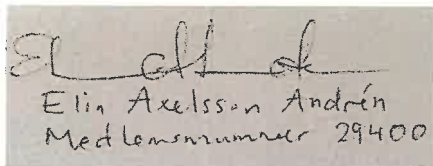 Elin Axelsson Andrén
Medlemsnummer 29400